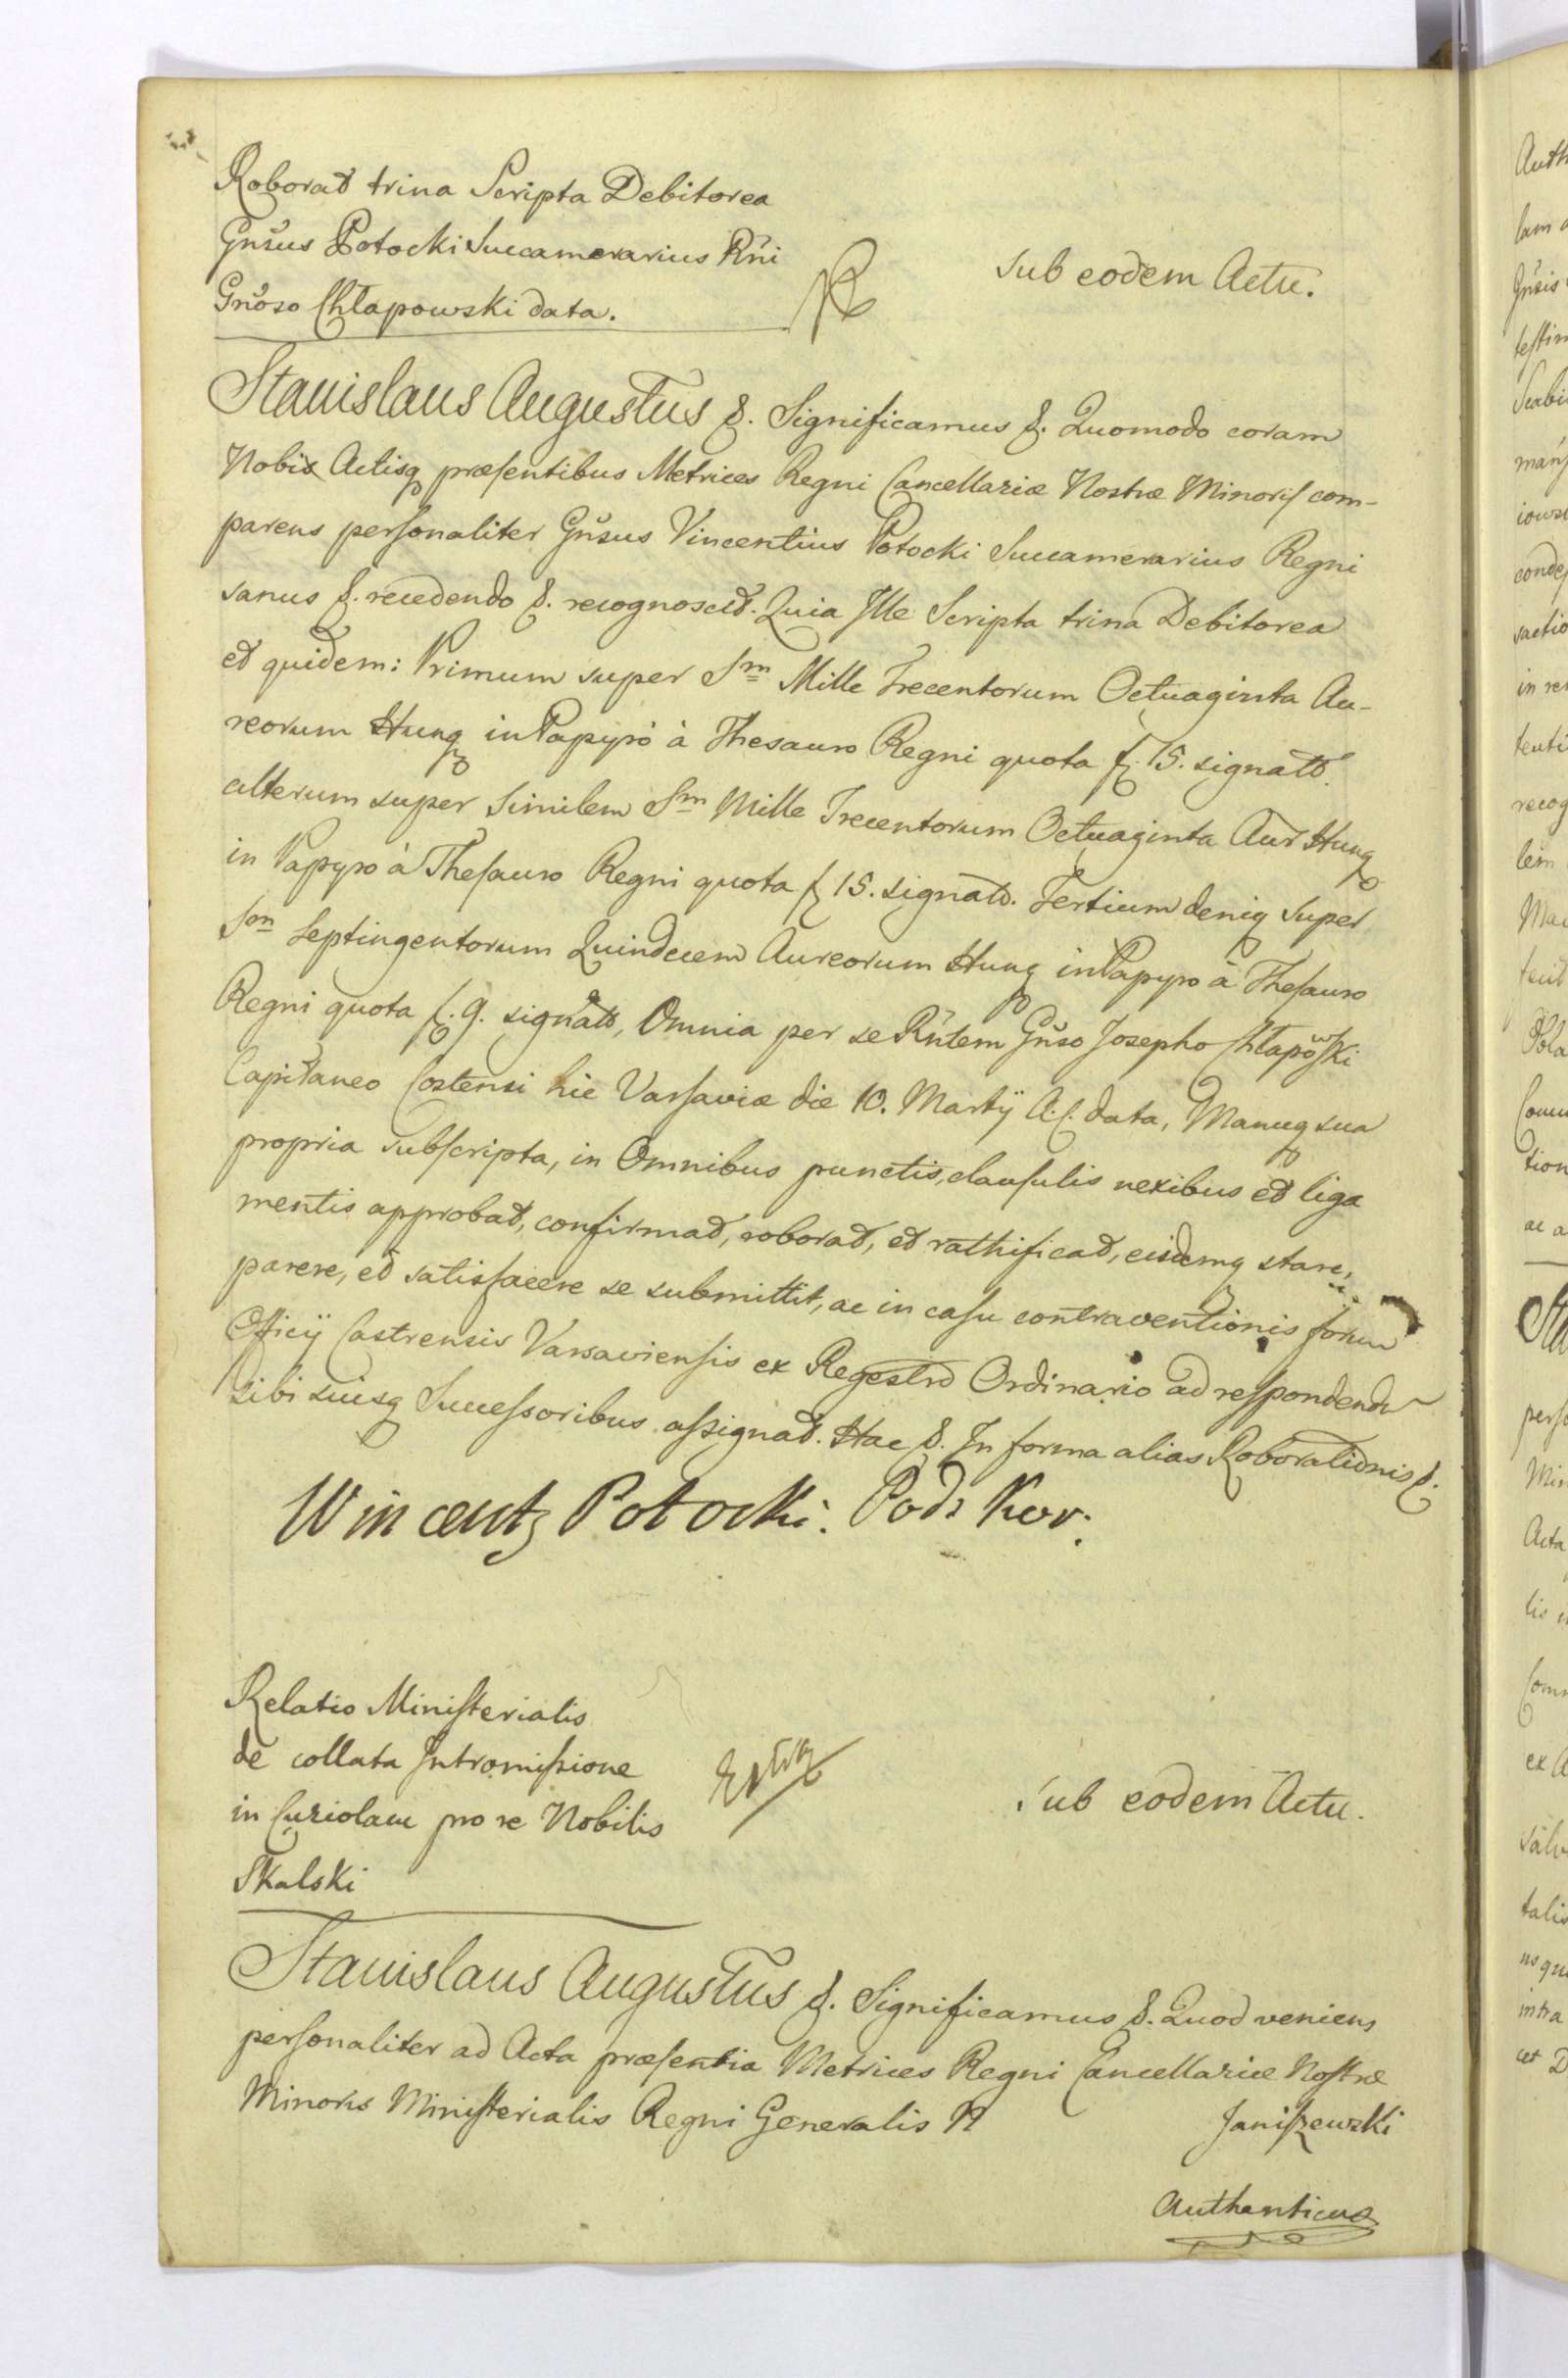 Roborat trina Scripta Debitorea
Gnsus Potocki Succamerarius Rni
Gnoso Chłapowski data.
Sub eodem Actu.
Stanislaus Augustus &. Significamus &. Quomodo coram
Nobis Actisq præsentibus Metrices Regni Cancellariæ Nostræ Minoris com-
parens personaliter Gnsus Vincentius Potocki Succamerarius Regni
sanus &. recedendo &. recognoscit. Quia Ille Scripta trina Debitorea
et quidem: Primum super Sm Mille Trecentorum Octuaginta Au-
reorum Hung in Papyro à Thesauro Regni quota f. 15. signatt.
alterum super similem Sm Mille Trecentorum Octuaginta Aur Hung
in Papyro à Thesauro Regni quota f 15. signatt. Tertium deniq super
Sm Septingentorum Quindecem Aureorum Hung in Papyro à Thesauro
Regni quota f. 9. signatt, Omnia per se Rntem Gnso Josepho Chłapowski
Capitaneo Costensi hic Varsaviæ die 10. Martÿ A. C. data, Manuq sua
propria subscripta, in Omnibus punctis, clausulis nexibus et liga
mentis approbat, confirmat, roborat, et rathificat, eisdemq stare,
parere, et satisfacere se submittit, ac in casu contraventionis forum
Officÿ Castrensis Varsaviensis ex Regestro Ordinario ad respondendu
sibi suisq Successoribus assignat. Hac &. In forma alias Roborationis &.
Wincenty Potocki. Pod: Kor:
Relatio Ministerialis
de collata Intromissione
in Curiolam pro re Nobilis
Skalski
Extra
Sub eodem Actu.
Stanislaus Augustus &. Significamus &. Quod veniens
personaliter ad Acta præsentia Metrices Regni Cancellariæ Nostræ
Minoris Ministerialis Regni Generalis N Janiszewski
Authenticus